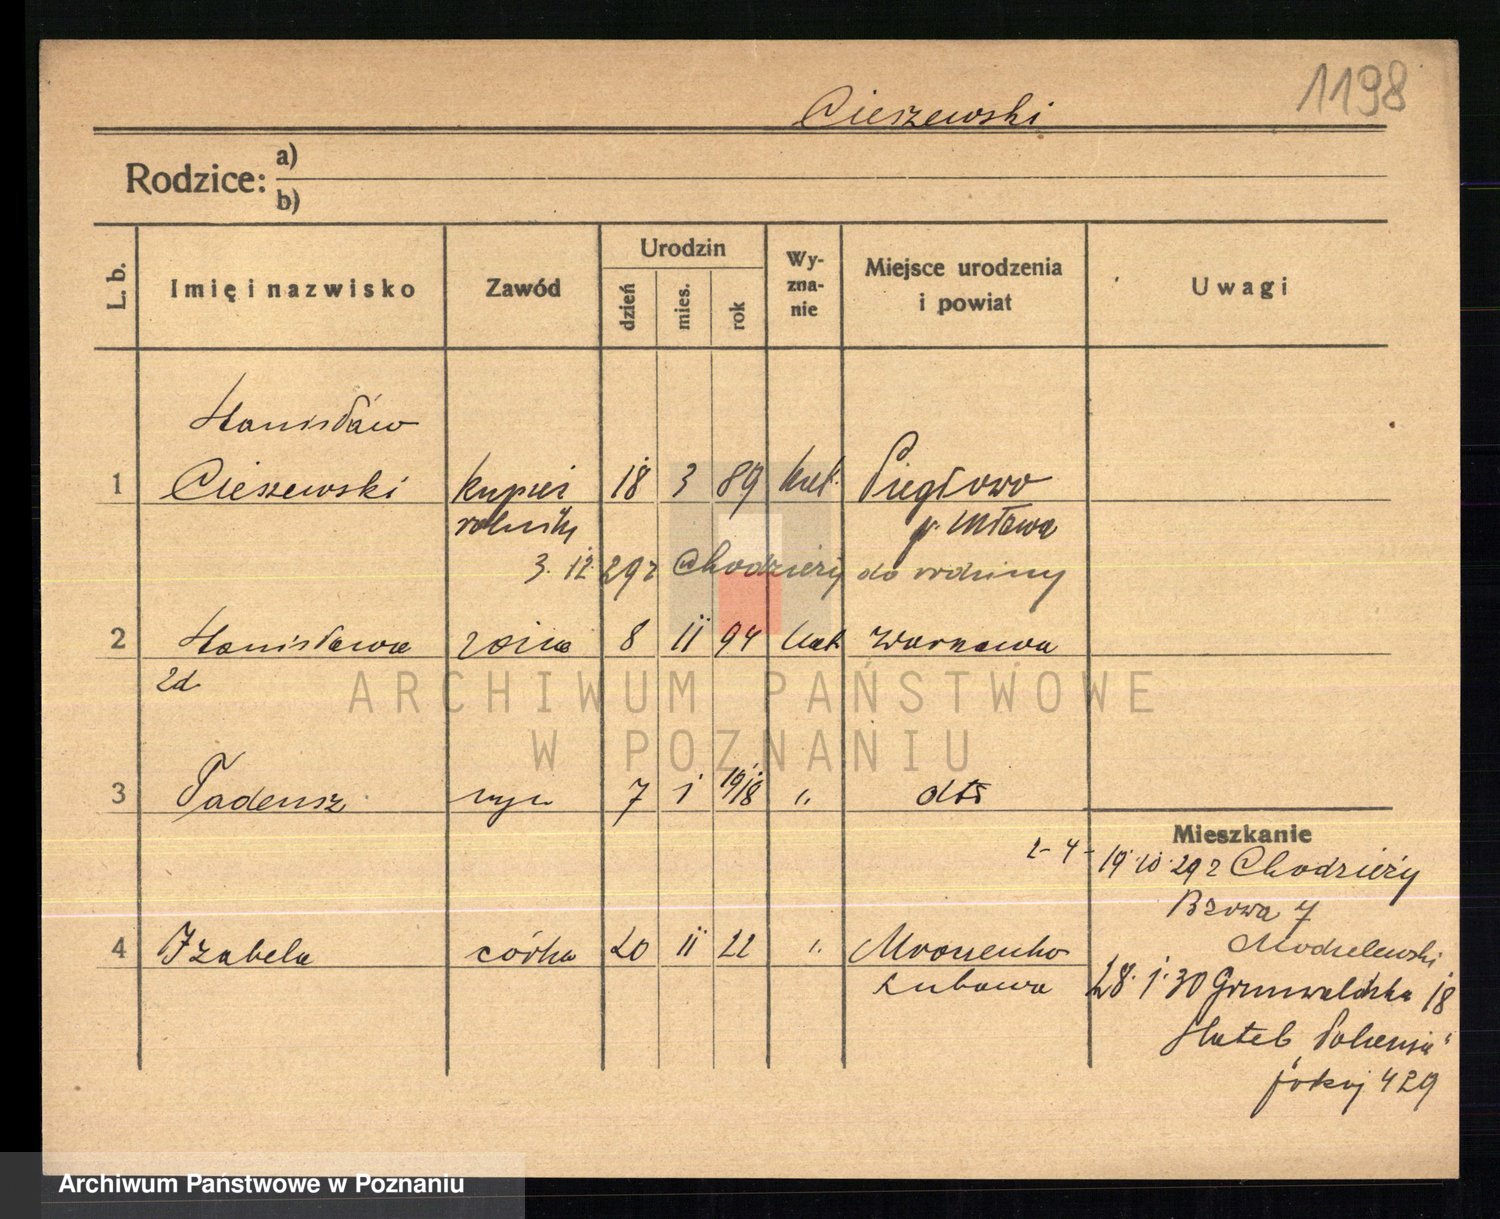 1198
Cieszewski
Rodzice: a)
b)
L. b.
Imię i nazwisko
Zawód
Urodzin
dzień
mies.
rok
Wy-
zna-
nie
Miejsce urodzenia
i powiat
Uwagi
Stanisław
1 Cieszewski kupiec 18 3 89 kat.
rolnik p. Mława
3. 12. 29 r Chodzieży do rodziny
2 Stanisława żona 8 11 94 kat Warszawa
2d
3 Tadeusz syn 7 1 19/18 ".
Mieszkanie
2-4- 19.10.29 r Chodzieży
7
4 Izabela córka 20 11 22 ".
Modrzelewski
Lubawa 28.1.30 Grunwaldzka 18
Hotel „Polonia"
pokój 429
ARCHIWUM PAŃSTWOWE
W POZNANIU
Archiwum Państwowe w Poznaniu